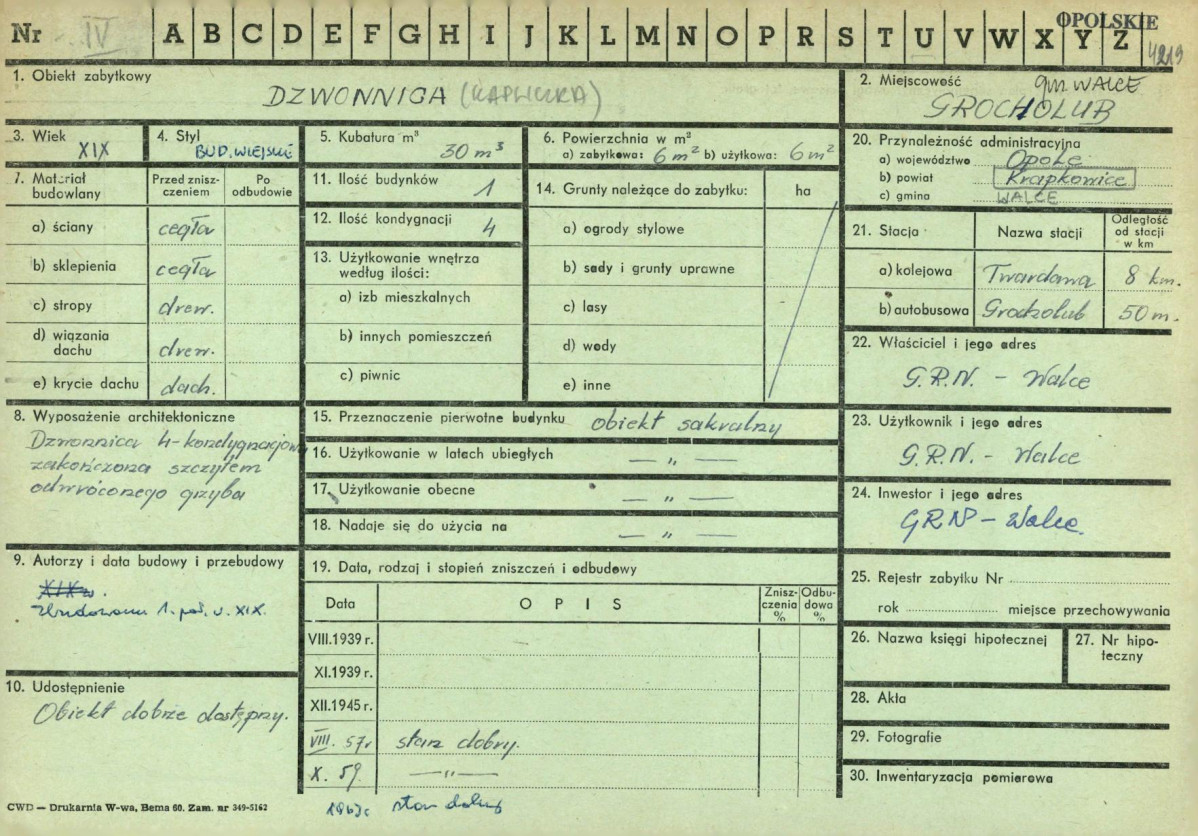 Nr IV A B C D E F G H I J K L M N O P R S T U V W X Y Z
OPOLSKIE
4219
1. Obiekt zabytkowy
DZWONNICA (KAPLICZKA)
2. Miejscowość gm. WALCE
GROCHOLUB
3. Wiek
XIX
4. Styl
BUD. WIEJSKIE
5. Kubatura m³
30 m³
6. Powierzchnia w m²
a) zabytkowa: 6 m² b) użytkowa: 6 m²
20. Przynależność administracyjna
a) województwo Opole
b) powiat Krapkowice
c) gmina WALCE
7. Materiał budowlany
Przed zniszczeniem
Po odbudowie
a) ściany cegła
b) sklepienia cegła
c) stropy drew.
d) wiązania dachu drew.
e) krycie dachu dach.
11. Ilość budynków 1
12. Ilość kondygnacji 4
13. Użytkowanie wnętrza według ilości:
a) izb mieszkalnych
b) innych pomieszczeń
c) piwnic
14. Grunty należące do zabytku: ha
a) ogrody stylowe
b) sady i grunty uprawne
c) lasy
d) wody
e) inne
21. Stacja
Nazwa stacji
Odległość od stacji w km
a) kolejowa Twardawa 8 km.
b) autobusowa Grocholub 50 m.
22. Właściciel i jego adres
G.R.N. - Walce
23. Użytkownik i jego adres
G.R.N. - Walce
24. Inwestor i jego adres
GRN - Walce.
8. Wyposażenie architektoniczne
Dzwonnica 4-kondygnacjowa
zakończona szczytem
odwróconego grzyba
15. Przeznaczenie pierwotne budynku obiekt sakralny
16. Użytkowanie w latach ubiegłych — „ —
17. Użytkowanie obecne — „ —
18. Nadaje się do użycia na — „ —
9. Autorzy i data budowy i przebudowy
XIX w.
Zbudowana 1. poł. w. XIX.
10. Udostępnienie
Obiekt dobrze dostępny.
19. Data, rodzaj i stopień zniszczeń i odbudowy
Data
OPIS
Zniszczenia %
Odbudowa %
VIII.1939 r.
XI.1939 r.
XII.1945 r.
VIII. 57r stan dobry.
X. 59. — „ —
1963r stan dobry
25. Rejestr zabytku Nr
rok miejsce przechowywania
26. Nazwa księgi hipotecznej
27. Nr hipoteczny
28. Akta
29. Fotografie
30. Inwentaryzacja pomiarowa
CWD — Drukarnia W-wa, Bema 60. Zam. nr 349-5162